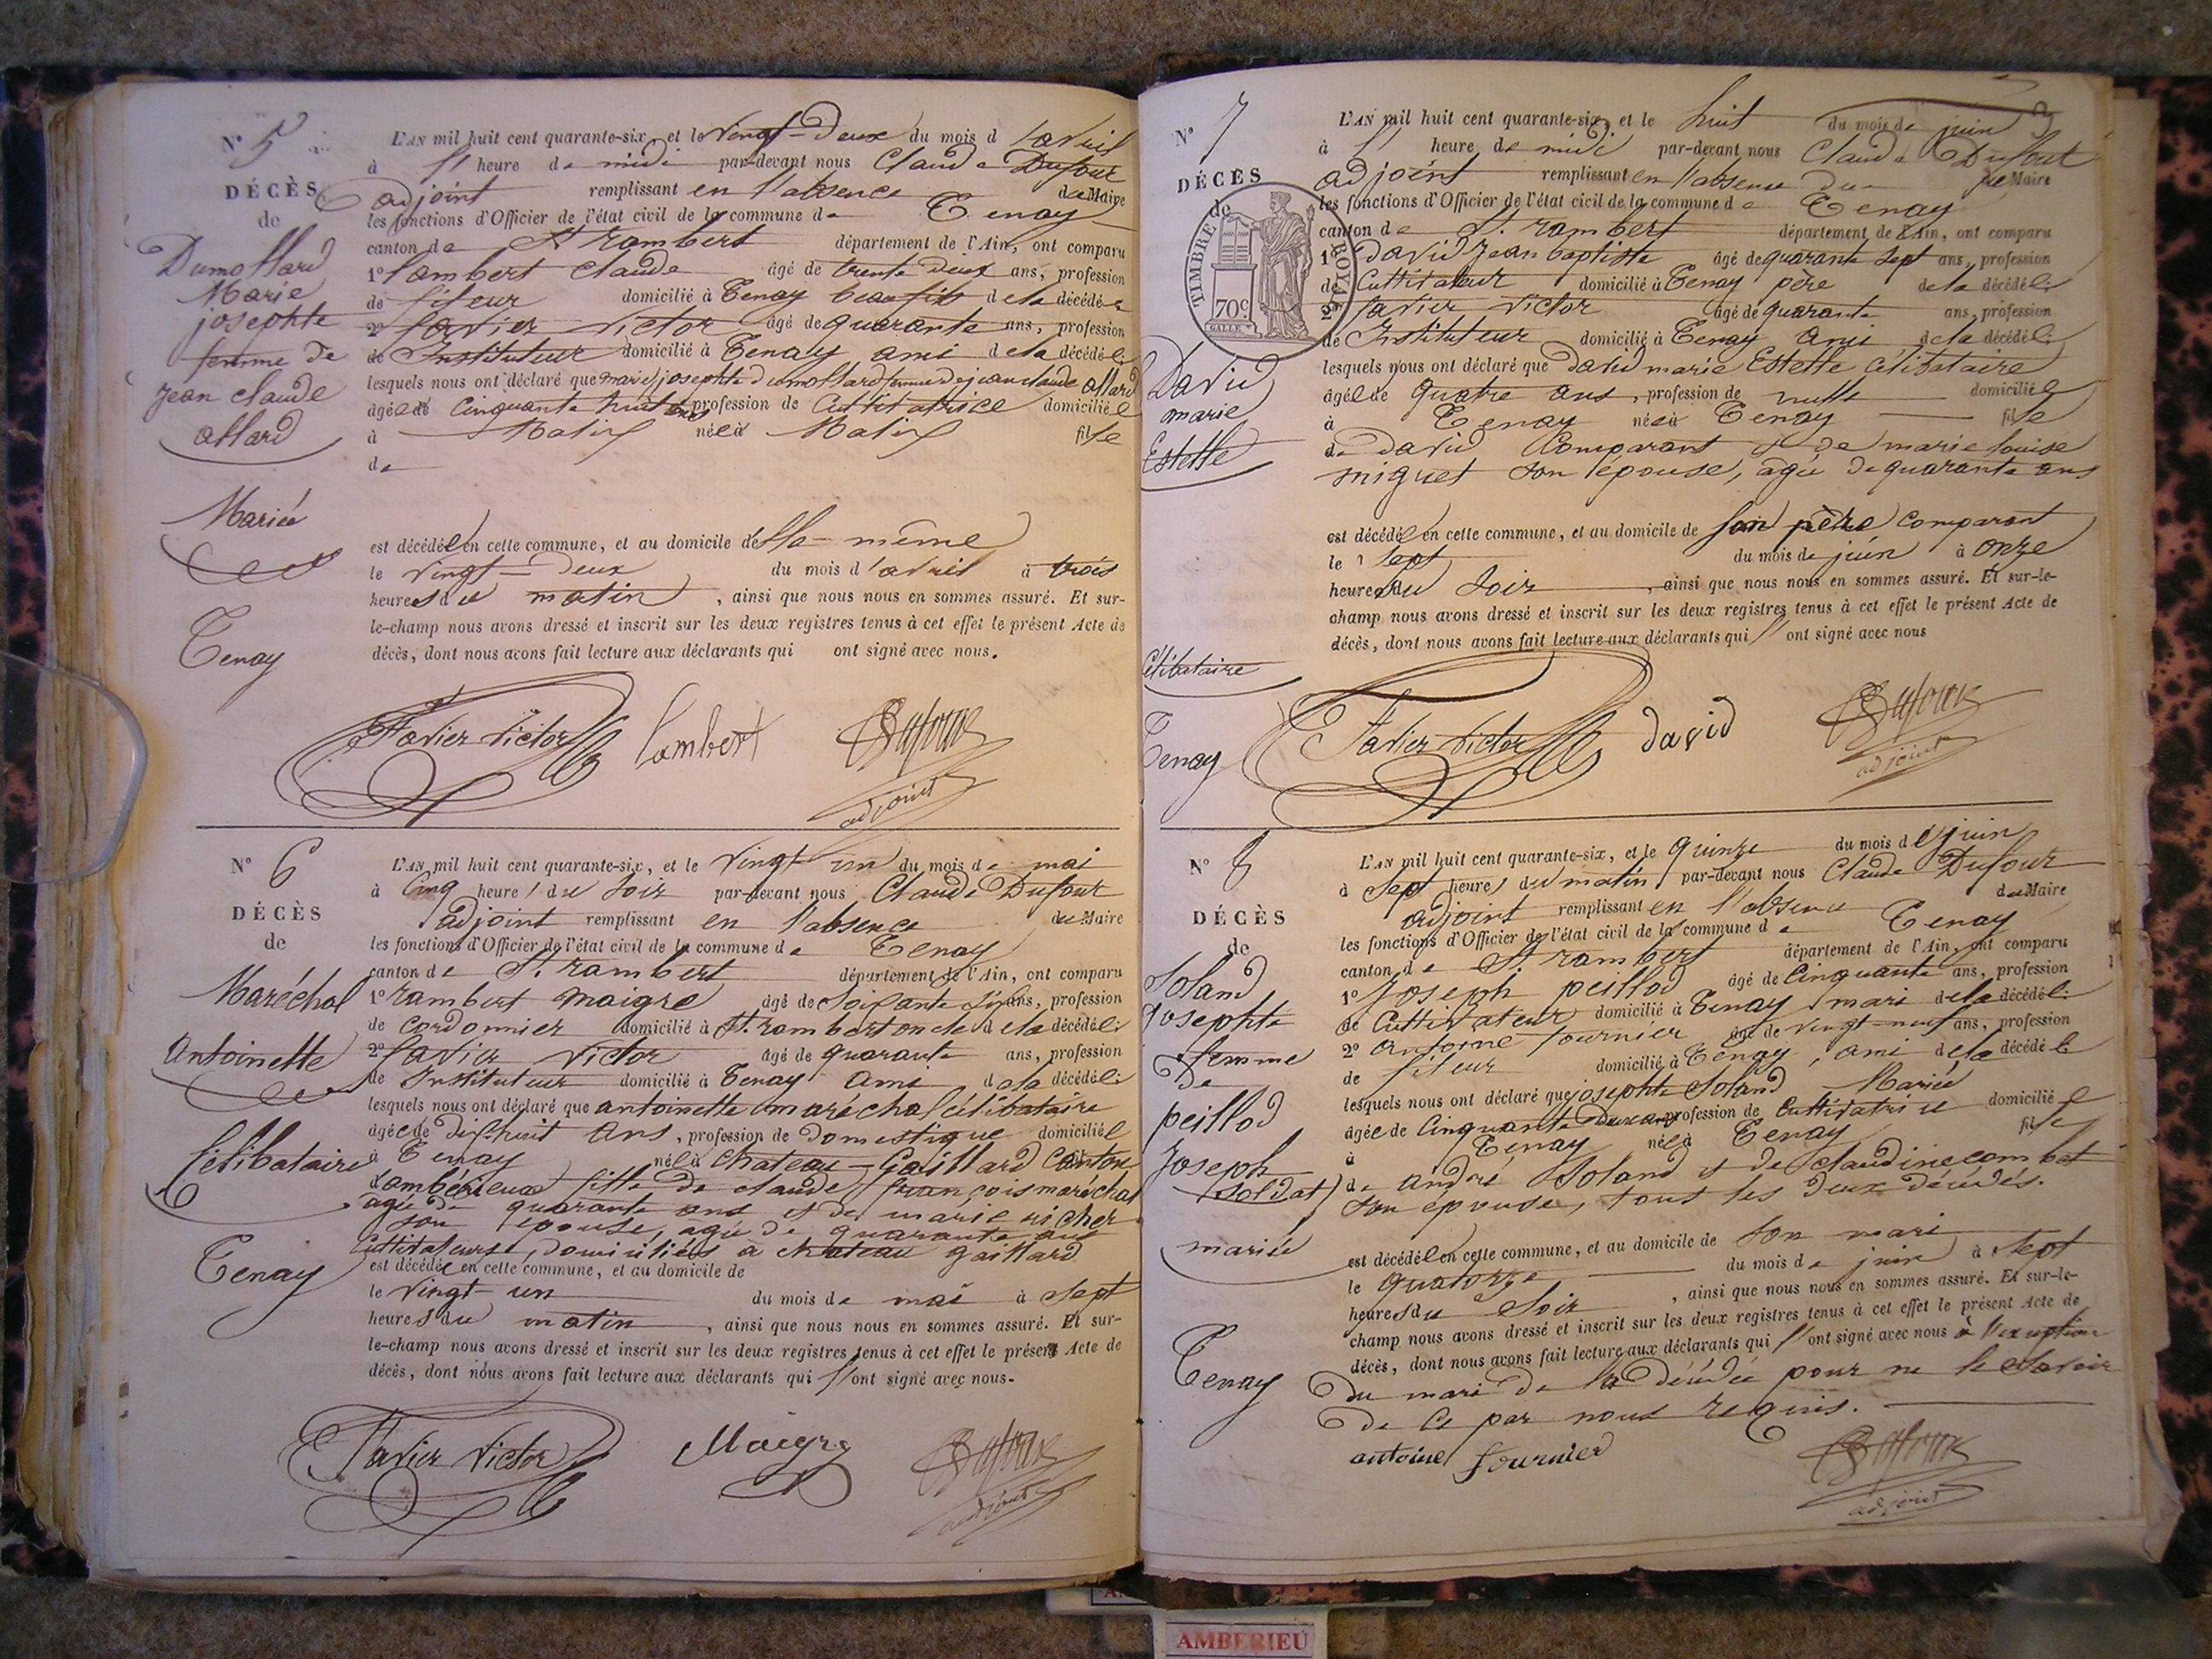 N° 5
DÉCÈS
de
Dumollard
Marie
josephte
femme de
jean claude
allard
Mariée
Tenay
L'AN mil huit cent quarante-six, et le vingt-deux du mois d'avril
à heure de midi par-devant nous Claude Dufour
adjoint remplissant en l'absence du Maire
les fonctions d'Officier de l'état civil de la commune de Tenay
canton de St rambert département de l'Ain, ont comparu
1° lambert claude âgé de trente deux ans, profession
de fileur domicilié à Tenay beau fils de la décédée
2° favier victor âgé de quarante ans, profession
de Instituteur domicilié à Tenay ami de la décédée
lesquels nous ont déclaré que marie josephte dumollard femme de jean claude allard
âgée de cinquante huit ans profession de Cultivatrice domiciliée
à née à fille
de
est décédée en cette commune, et au domicile d'elle-même
le vingt-deux du mois d'avril à trois
heures du matin, ainsi que nous nous en sommes assuré. Et sur-
le-champ nous avons dressé et inscrit sur les deux registres tenus à cet effet le présent Acte de
décès, dont nous avons fait lecture aux déclarants qui ont signé avec nous.
Favier victor lambert Dufour
adjoint
N° 6
DÉCÈS
de
Maréchal
Antoinette
Célibataire
Tenay
L'AN mil huit cent quarante-six, et le vingt un du mois de mai
à Cinq heures du soir par-devant nous Claude Dufour
adjoint remplissant en l'absence du Maire
les fonctions d'Officier de l'état civil de la commune de Tenay
canton de St. rambert département de l'Ain, ont comparu
1° rambert maigre âgé de soixante six ans, profession
de cordonnier domicilié à St. rambert oncle de la décédée
2° favier victor âgé de quarante ans, profession
de Instituteur domicilié à Tenay ami de la décédée
lesquels nous ont déclaré que antoinette maréchal célibataire
âgée de dix-huit ans, profession de domestique domiciliée
à Tenay née à chateau-Gaillard canton
d'ambérieux fille de claude françois maréchal
agé de quarante ans et de marie richer
son épouse, agée de quarante ans
Cultivateurs, domiciliés à chateau gaillard
est décédée en cette commune, et au domicile de
le vingt-un du mois de mai à sept
heures du matin, ainsi que nous nous en sommes assuré. Et sur-
le-champ nous avons dressé et inscrit sur les deux registres tenus à cet effet le présent Acte de
décès, dont nous avons fait lecture aux déclarants qui ont signé avec nous.
Favier victor Maigre Dufour
adjoint
N° 7
DÉCÈS
de
TIMBRE ROYAL
70c
David
marie
Estelle
Célibataire
Tenay
L'AN mil huit cent quarante-six, et le huit du mois de juin
à heure de midi par-devant nous Claude Dufour
adjoint remplissant en l'absence du Maire
les fonctions d'Officier de l'état civil de la commune de Tenay
canton de St. rambert département de l'Ain, ont comparu
1° David jean baptiste âgé de quarante sept ans, profession
de Cultivateur domicilié à Tenay père de la décédée
2° favier victor âgé de quarante ans, profession
de Instituteur domicilié à Tenay Ami de la décédée
lesquels nous ont déclaré que David marie Estelle célibataire
âgée de quatre ans, profession de nulle domiciliée
à Tenay née à Tenay fille
de David Comparant et de marie louise
miguet son épouse, agée de quarante ans
est décédée en cette commune, et au domicile de son père comparant
le sept du mois de juin à onze
heures du soir, ainsi que nous nous en sommes assuré. Et sur-le-
champ nous avons dressé et inscrit sur les deux registres tenus à cet effet le présent Acte de
décès, dont nous avons fait lecture aux déclarants qui ont signé avec nous
Favier victor david Dufour
adjoint
N° 8
DÉCÈS
de
Soland
Josephte
femme
de
peillod
Joseph
(soldat)
mariée
Tenay
L'AN mil huit cent quarante-six, et le quinze du mois de juin
à sept heures du matin par-devant nous Claude Dufour
adjoint remplissant en l'absence du Maire
les fonctions d'Officier de l'état civil de la commune de Tenay
canton de St rambert département de l'Ain, ont comparu
1° Joseph peillod âgé de cinquante ans, profession
de Cultivateur domicilié à Tenay mari de la décédée
2° antoine fournier âgé de vingt-neuf ans, profession
de fileur domicilié à Tenay, ami de la décédée
lesquels nous ont déclaré que josephte Soland Mariée
âgée de Cinquante deux ans profession de Cultivatrice domiciliée
à Tenay née à Tenay fille
de andré Soland et de claudine combet
son épouse, tous les deux décédés.
est décédée en cette commune, et au domicile de son mari
le quatorze du mois de juin à sept
heures du soir, ainsi que nous nous en sommes assuré. Et sur-le-
champ nous avons dressé et inscrit sur les deux registres tenus à cet effet le présent Acte de
décès, dont nous avons fait lecture aux déclarants qui ont signé avec nous à l'exception
du mari de la décédée pour ne le savoir
de ce par nous requis.
antoine fournier Dufour
adjoint
AMBERIEU